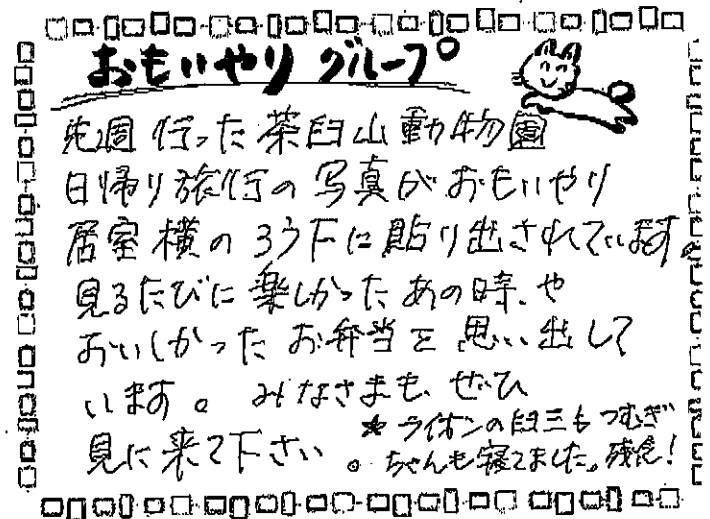 おもいやり グループ
先週 行った 茶臼山動物園
日帰り旅行の写真がおもいやり
居室横のろう下に貼り出されています。
見るたびに楽しかったあの時、や
おいしかったお弁当を思い出して
います。みなさまも、ぜひ
見に来て下さい。
★ ライオンの臼三もつむぎ
ちゃんも寝てました。残念!